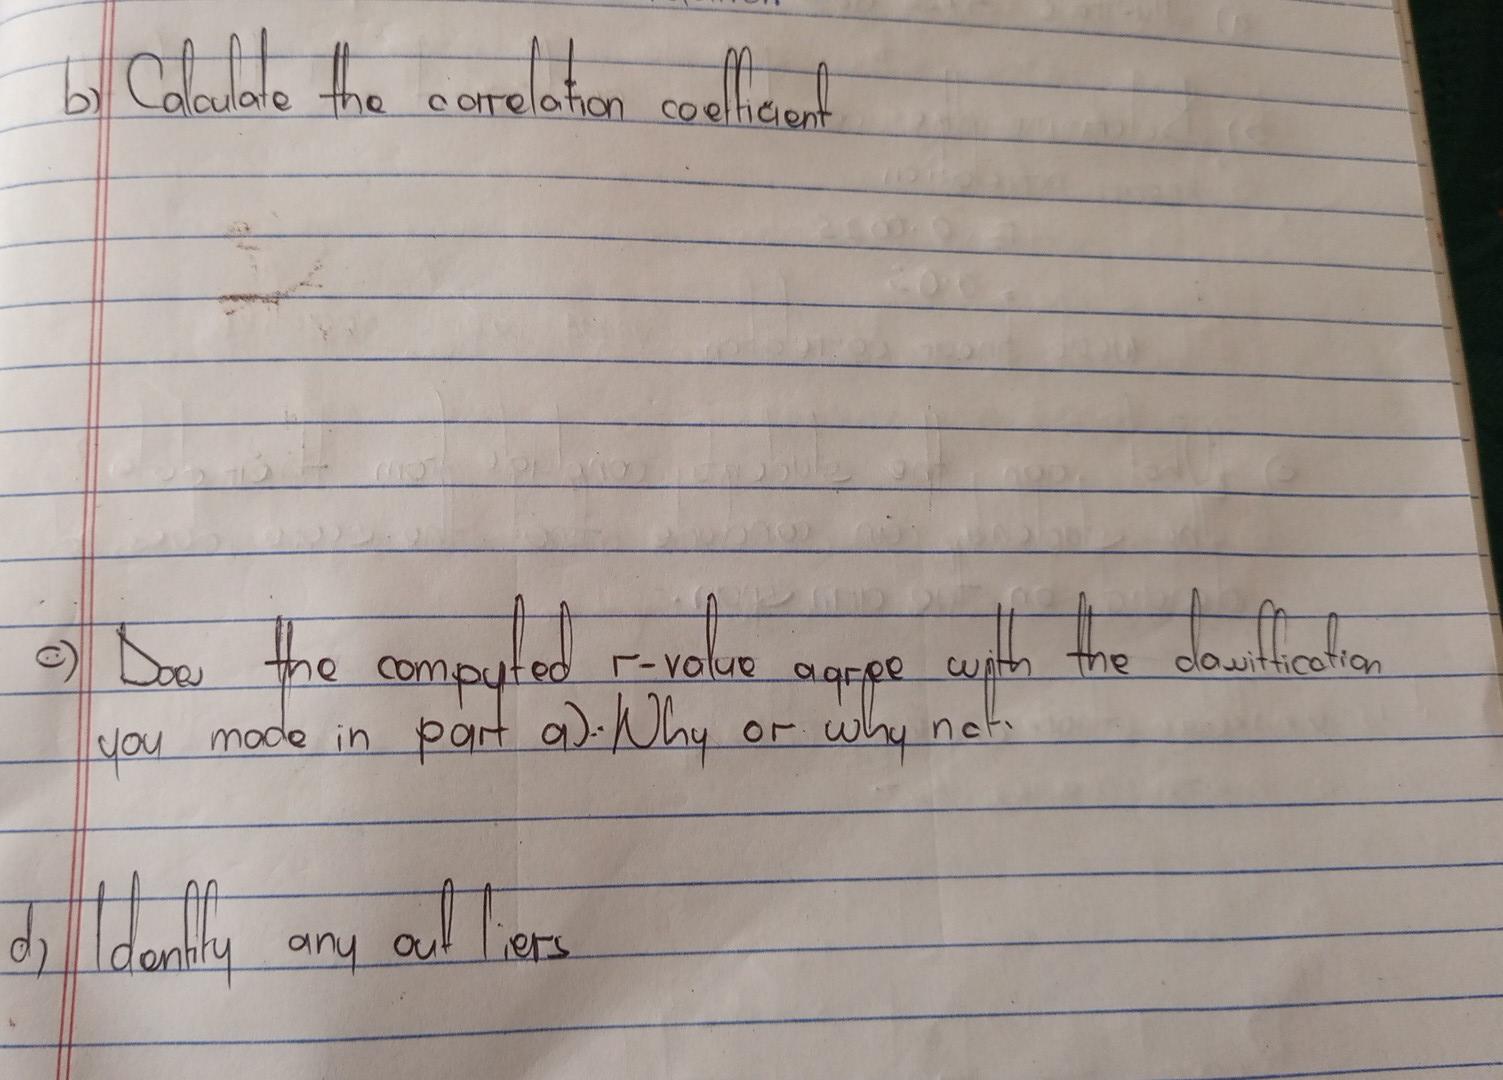 b) Calculate the correlation coefficient
c) Does the computed r-value agree with the classification
you made in part a). Why or why not.
d) Identify any out liers